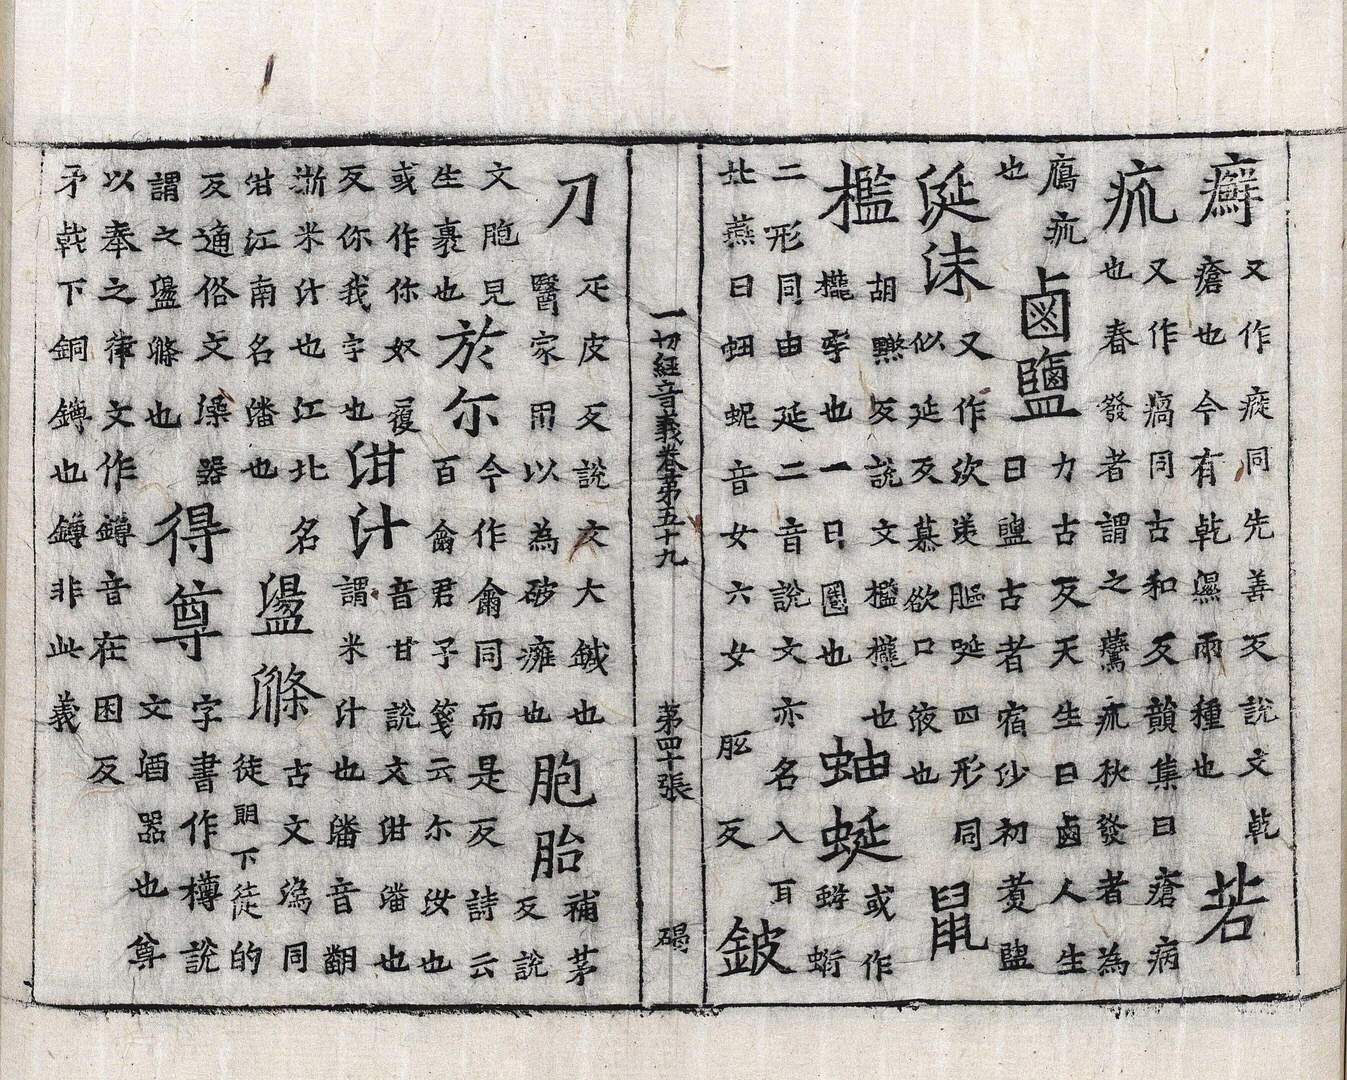 癬又作㾌同先善反說文乾
瘡也今有乾濕兩種也
苦
疨又作瘑同古和反韻集曰瘡病
也春發者謂之鷰疨秋發者為
鴈疨
鹵鹽力古反天生曰鹵人生
也曰鹽古者宿沙初煑鹽
鼠
涎沫又作㳄羨𦠄唌四形同
似延反慕欲口液也
檻胡黤反說文檻櫳也
櫳牢也一曰圈也
蚰蜒或作蝣蚻
二形同由延二音說文亦名入耳
北燕曰蛆蚭音女六女胝反
鈹
一切經音義卷第五十九 第四十張 碣
刀疋皮反說文大鍼也
醫家用以為破癰也
胞胎補茅反說
文胞兒生裹也
於尒今作龠同而是反詩云
百龠君子箋云尒汝也
或作你奴履反你我字也
泔汁音甘說文泔潘也
謂米汁也潘音翻
淅米汁也江北名
泔江南名潘也
盪滌古文潒同
徒朗下徒的
反通俗文澡器
謂之盪滌也
得尊字書作樽說
文酒器也尊
以奉之律文作鐏音在困反
矛戟下銅鐏也鐏非此義